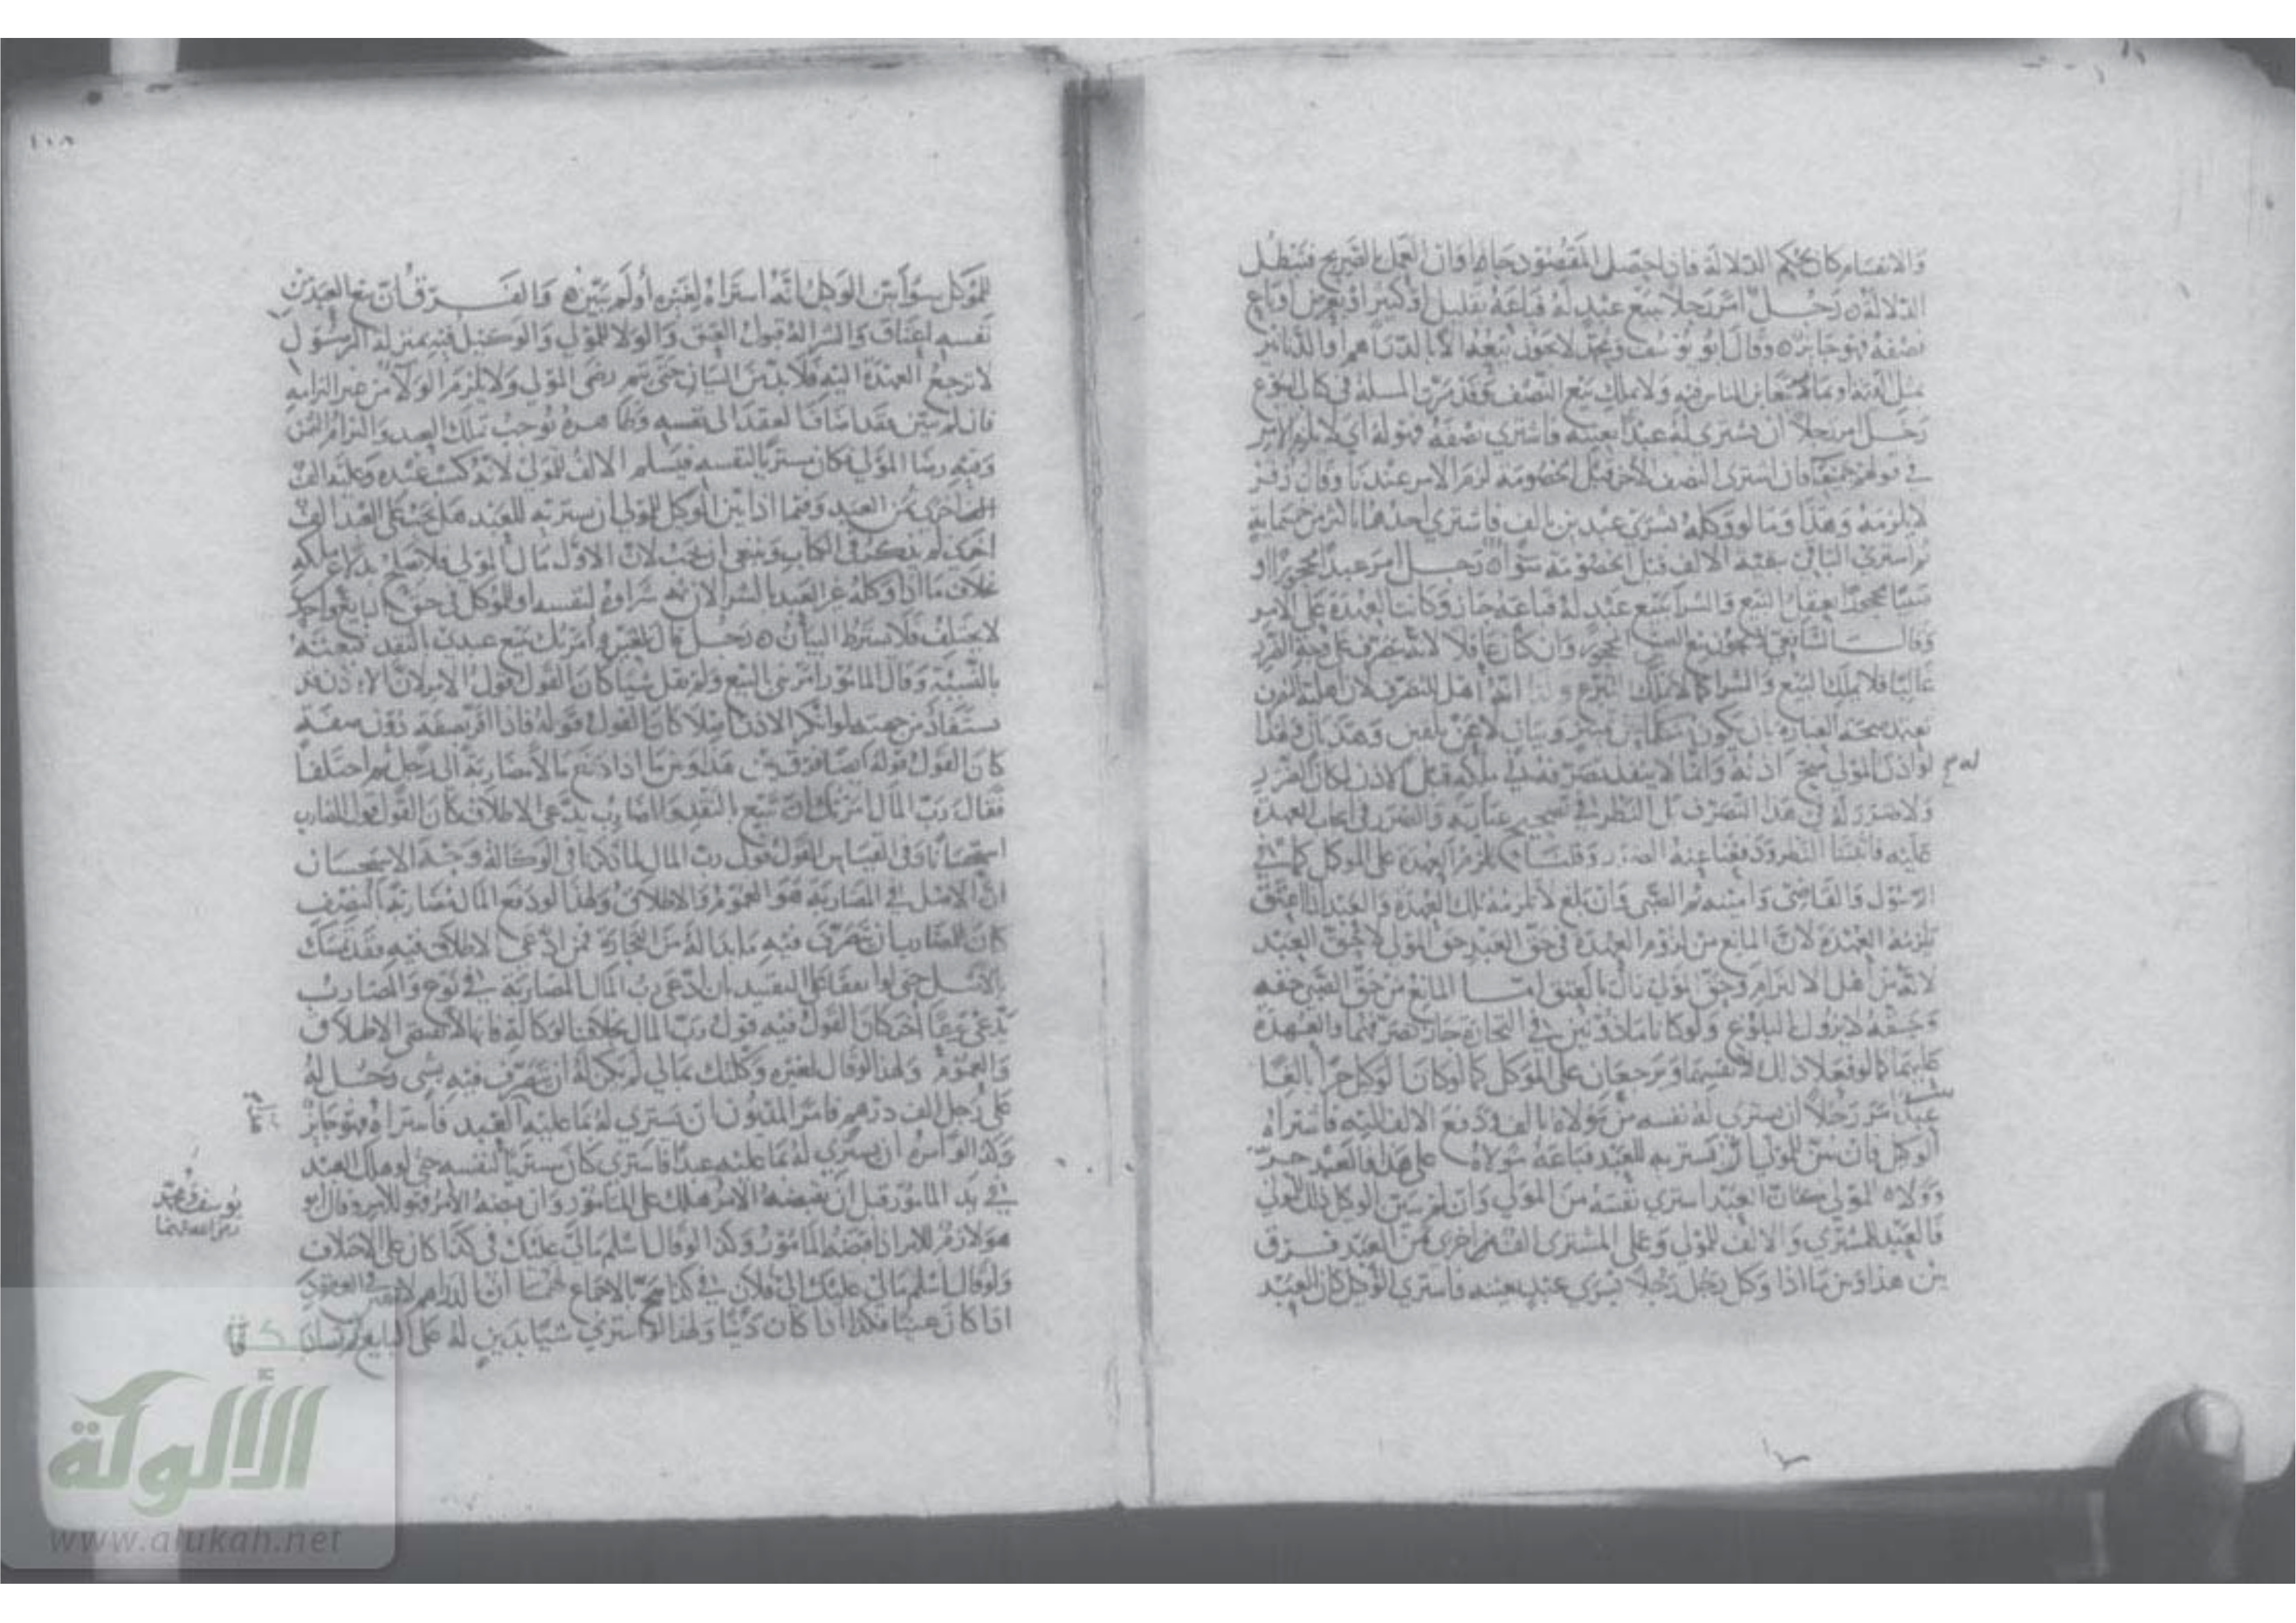 والانقسام كان بحكم الدلالة فاذا حصل المقصود جاز اوان العمل الصريح فتبطل
الدلالة رجل امر رجلا ببيع عبد له فباعه بقليل او كثير او بعرض او باع
نصفه فهو جائز وقال ابو يوسف ومحمد لا يجوز بيعه الا بالدراهم او الدنانير
بمثل قيمته او بما يتغابن الناس فيه ولا يملك بيع النصف وقد مرت المسلة في كتاب البيوع
رجل امر رجلا ان يشتري له عبدا بعينه فاشترى نصفه فهو له اي لا يلزم الامر
في قولهم جميعا فان اشترى النصف الاخر قبل الخصومة لزم الامر عندنا وقال زفر
لا يلزمه وهذا وما لو وكله بشرى عبدين بالف فاشترى احدهما باكثر من خمسمائة
ثم اشترى الباقي ببقية الالف قبل الخصومة سواء رجل امر عبدا محجورا او
صبيا محجورا يعقل البيع والشرا ببيع عبد له فباعه جاز وكانت العهدة على الامر
وقال الشافعي لا يجوز بيع الصبي المحجور وان كان عاقلا لانه تصرف على وجه الضرر
غالبا فلا يملك البيع والشرا كما لا يملك التبرع ولنا انه اهل للتصرف لان اهلية
تعتمد صحة العبارة بان يكون متكلما عن تمييز وبيان لا عن تلقين وهذيان ولهذا
لو اذن المولى صح اذنه وانما لا ينفذ تصرفه في ملكه قبل الاذن لمكان الضرر
له م
ولا ضرر له في هذا التصرف بل النظر في تصحيح عبارته والضرر في ايجاب العهدة
عليه فاثبتنا النظر ودفعنا عنه الضرر وقلنا تلزم العهدة على الموكل كما في
الرسول والقاضي وامينه ثم الصبي وان بلغ لا تلزمه تلك العهدة والعبد اذا اعتق
تلزمه العهدة لان المانع من لزوم العهدة في حق العبد حق المولى لا حق العبد
لانه من اهل الالتزام وحق المولى زال بالعتق اما المانع من حق الصبي حقه
وحقه لا يزول بالبلوغ ولو كانا ماذونين في التجارة جاز تصرفهما والعهدة
عليهما كما لو فعلا ذلك لانفسهما ويرجعان على الموكل كما لو كان الوكيل حرا بالغا
عبد امر رجلا ان يشتري له نفسه من مولاه بالف ودفع الالف اليه فاشتراه
الوكيل فان بين للمولى انه يشتريه للعبد فباعه مولاه على هذا فالعبد حر
وولاه للمولى كان العبد اشترى نفسه من المولى وان لم يبين الوكيل ذلك للمولى
فالعبد للمشتري والالف للمولى وعلى المشتري الف اخرى ثمن العبد فرق
بين هذا وبين ما اذا وكل رجل رجلا بشرى عبد بعينه فاشترى الوكيل كان العبد
١٠٨
للموكل سوا بين الوكيل انه اشتراه لغيره او لم يبين والفرق ان بيع العبد من
نفسه اعتاق والشرا له قبول العتق والولا للمولى والوكيل فيه بمنزلة الرسول
لا ترجع العهدة اليه فلا بد من البيان حتى يتم رضى المولى ولا يلزمه الولا من غير التزامه
فان لم يبين فقد اضاف العقد الى نفسه وظاهره يوجب تملك العبد والتزام الثمن
وفيه رضا المولى فكان مشتريا لنفسه فيسلم الالف للمولى لانه كسب عبده وعليه الف
اخرى ثمن العبد وفيما اذا بين الوكيل للمولى ان يشتريه للعبد هل يجب على العبد الف
اخرى لم يذكر في الكتاب وينبغي ان يجب لان الاول مال المولى فلا يصلح بدلا عن ملكه
بخلاف ما اذا وكله غير العبد بالشرا لان ثمه شراوه لنفسه او للموكل في حق البايع واحد
لا يختلف فلا يشترط البيان رجل قال لغيره امرتك ببيع عبدي بالنقد فبعته
بالنسيئة وقال المامور امرتني بالبيع ولم تقل شيا كان القول قول الامر لان الاذن
يستفاد من جهته لو انكر الاذن اصلا كان القول قوله فاذا اقر بصفة دون صفة
كان القول قوله ايضا فرق بين هذا وبين ما اذا دفع مالا مضاربة الى رجل ثم اختلفا
فقال رب المال امرتك ان تبيع بالنقد والمضارب يدعي الاطلاق كان القول قول المضارب
استحسانا وفي القياس القول قول رب المال لما ذكرنا في الوكالة وجه الاستحسان
ان الاصل في المضاربة هو العموم والاطلاق ولهذا لو دفع المال مضاربة بالنصف
كان للمضارب ان يتصرف فيه ما بدا له من التجارة فمن ادعى الاطلاق فيه فقد تمسك
بالاصل حتى لو اتفقا على التقييد بان ادعى رب المال المضاربة في نوع والمضارب
يدعي نوعا اخر كان القول فيه قول رب المال بخلاف الوكالة فانها لا تقتضي الاطلاق
والعموم ولهذا لو قال لغيره وكلتك بمالي لم يكن له ان يتصرف فيه بشي رجل له
على رجل الف درهم فامر المديون ان يشتري له بما عليه العبد فاشتراه فهو جائز
وكذا لو امره ان يشتري له بما عليه عبدا فاشترى كان مشتريا لنفسه حتى لو هلك العبد
في يد المامور قبل ان يقبضه الامر هلك على المامور وان قبضه الامر فهو للامر وقال ابو
يوسف ومحمد
رحمهما الله
هو لازم للامر اذا قبضه المامور وكذا لو قال اسلم مالي عليك في كذا كان على الاختلاف
ولو قال اسلم مالي عليك الى فلان في كذا صح بالاجماع لهما ان الدراهم لا تتعين في العقود
اذا كان عينا فكذا اذا كان دينا ولهذا لو اشترى شيا بدين له على البايع ثم
شبكة
الألوكة
www.alukah.net